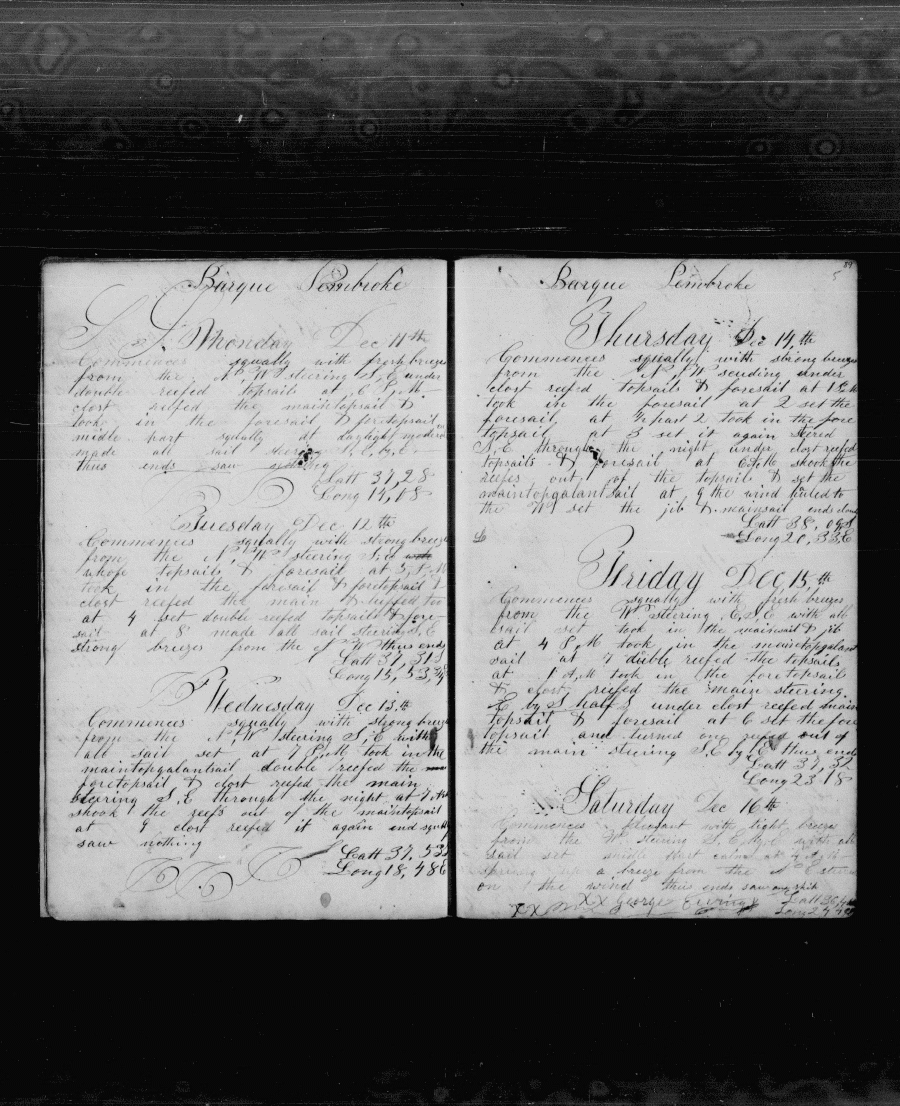 Barque Pembroke
Monday Dec 11th
Commences squally with fresh breezes
from the N, W steering S, E under
double reefed topsails at 6 P, M
clost reefed the maintopsail &
took in the foresail & foretopsail
midle part squally at daylight moderate
made all sail steering S, E, by E
thus ends saw nothing
Latt 37,28
Long 14,08
Tuesday Dec 12th
Commences squally with strong breezes
from the N, W steering S, E
whole topsails & foresail at 3, P, M
took in the foresail & foretopsail &
clost reefed the main &
at 4 set double reefed topsails & fore
sail at 8 made all sail steering S, E
strong breezes from the W thus ends
Latt 37, 31 S
Long 15, 53,
Wednesday Dec 13th
Commences squally with strong breezes
from the N, W steering S, E with
all sail set at 7 P, M took in the
maintopgalantsail double reefed the
foretopsail & clost reefed the main
steering S, E through the night at
shook the reefs out of the maintopsail
at 9 clost reefed it again end squally
saw nothing
Latt 37, 53 S
Long 18, 48 E
89
5
Barque Pembroke
Thursday Dec 14th
Commences squally with strong breezes
from the N, W scuding under
clost reefed topsails & foresail at 1 P, M
took in the foresail at 2 set the
foresail at ½ past 2 took in the fore
topsail at 3 set it again stered
S, E through the night under clost reefed
topsails & foresail at 6 A, M shook the
reefes out of the topsails & set the
maintopgalantsail at 9 the wind hailed to
the W set the jib & mainsail ends
Latt 38, 09 S
Long 20, 33 E
Friday Dec, 15, th
Commences squally with fresh breezes
from the W steering E, S, E with all
sail set took in the mainsail & jib
at 4 P, M took in the maintopgalant
sail at 7 duble reefed the topsails
at 1 A, M took in the foretopsail
& clost reefed the main steering
E by S half S under clost reefed main
topsail & foresail at 6 set the fore
topsail and turned one reef out of
the main steering S, E by E thus ends
Latt 37, 32
Long 23 18
Saturday Dec 16th
Commences pleasant with light breeze
from the W steering S, E by E with all
sail set midle part calm at
sprung up a breeze from the N E stered
on the wind thus ends saw
XX XX George Ewing
Latt 36,
Long 24